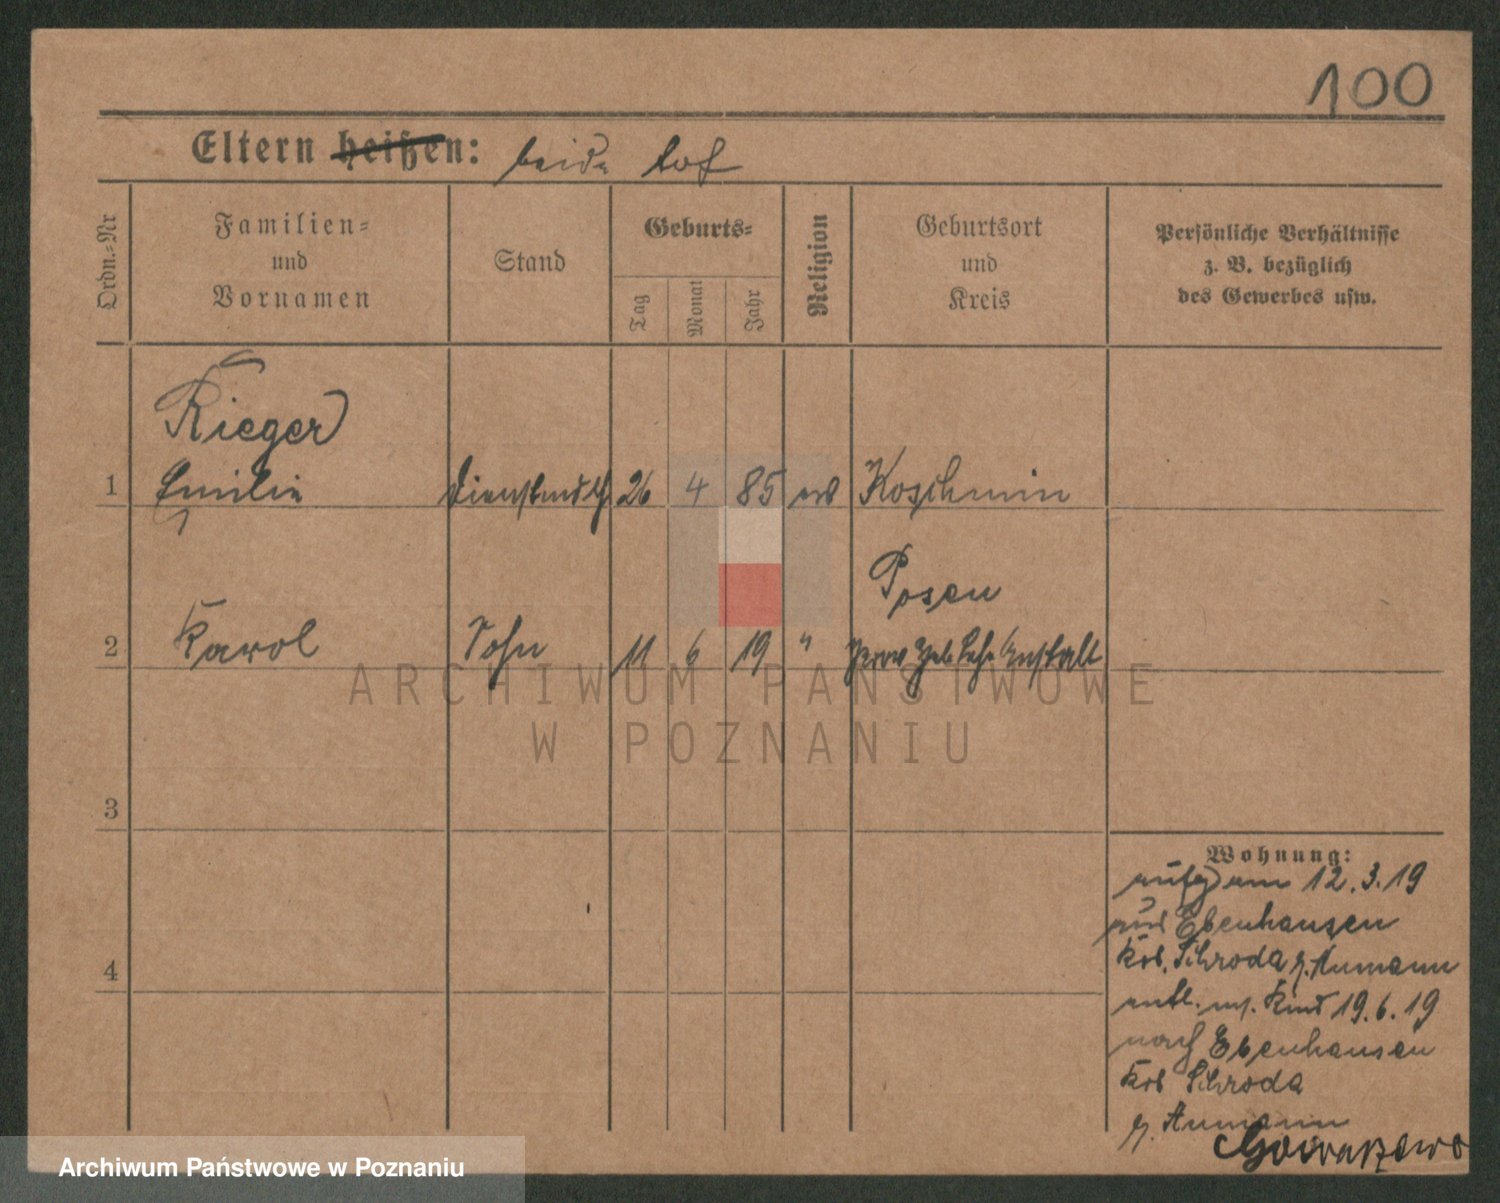 100
Eltern heißen: beide tot
Ordn.-Nr
Familien-
und
Vornamen
Stand
Geburts-
Tag
Monat
Jahr
Religion
Geburtsort
und
Kreis
Persönliche Verhältnisse
z. B. bezüglich
des Gewerbes usw.
Rieger
1 Emilie 26 4 85 Koschmin
Posen
2 Karol Sohn 11 6 19 " Anstalt
3
4
Wohnung:
am 12.3.19
aus Ebenhausen
Krs. Schroda z. Aumann
entl. m. Kind 19.6.19
nach Ebenhausen
Krs Schroda
z. Aumann
ARCHIWUM PAŃSTWOWE
W POZNANIU
Archiwum Państwowe w Poznaniu